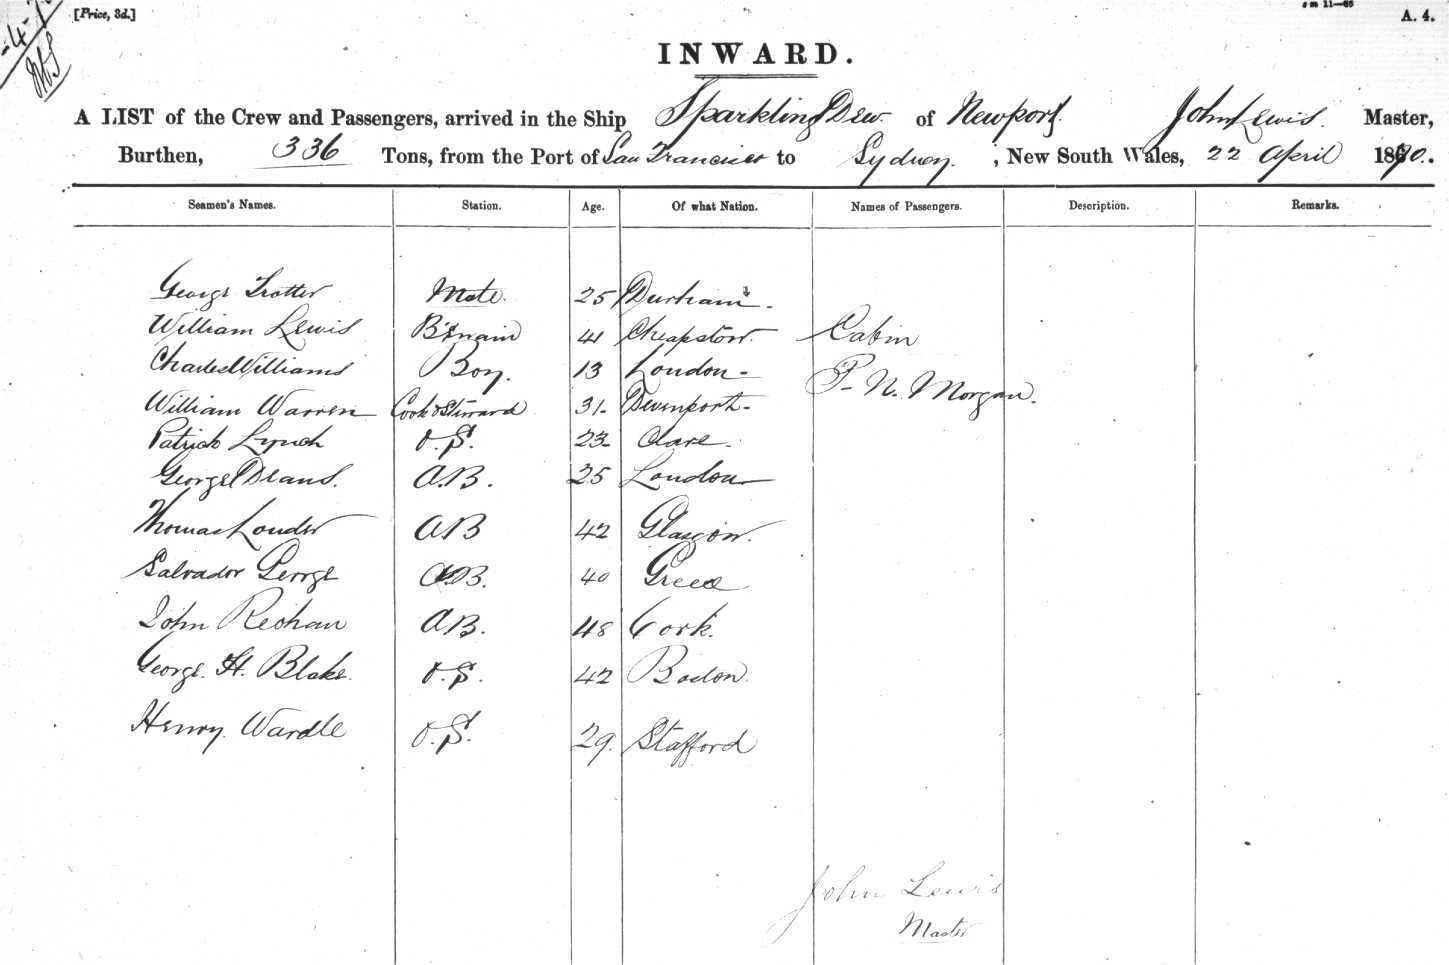 [Price, 3d.]
A. 4.
INWARD.
A LIST of the Crew and Passengers, arrived in the Ship Sparkling Dew. of Newport. John Lewis. Master,
Burthen, 336 Tons, from the Port of San Francisco to Sydney. , New South Wales, 22 April 1870.
Seamen's Names. Station. Age. Of what Nation. Names of Passengers. Description. Remarks.
George Trotter Mate. 25 Durham -
William Lewis B'swain 41 Cheapstow. Cabin
Charles Williams Boy. 13 London -
P- N. Morgan.
William Warren Cook & Steward 31- Devenport-
Patrick Lynch O.S. 23- Clare -
George Deans. A.B. 25 London
Thomas Louder AB 42 Glasgow.
Salvador George A.B. 40 Greece
John Reohan AB. 48 Cork.
George. H. Blake. O.S. 42 Boston.
Henry Wardle O.S. 29. Stafford
John Lewis
Master